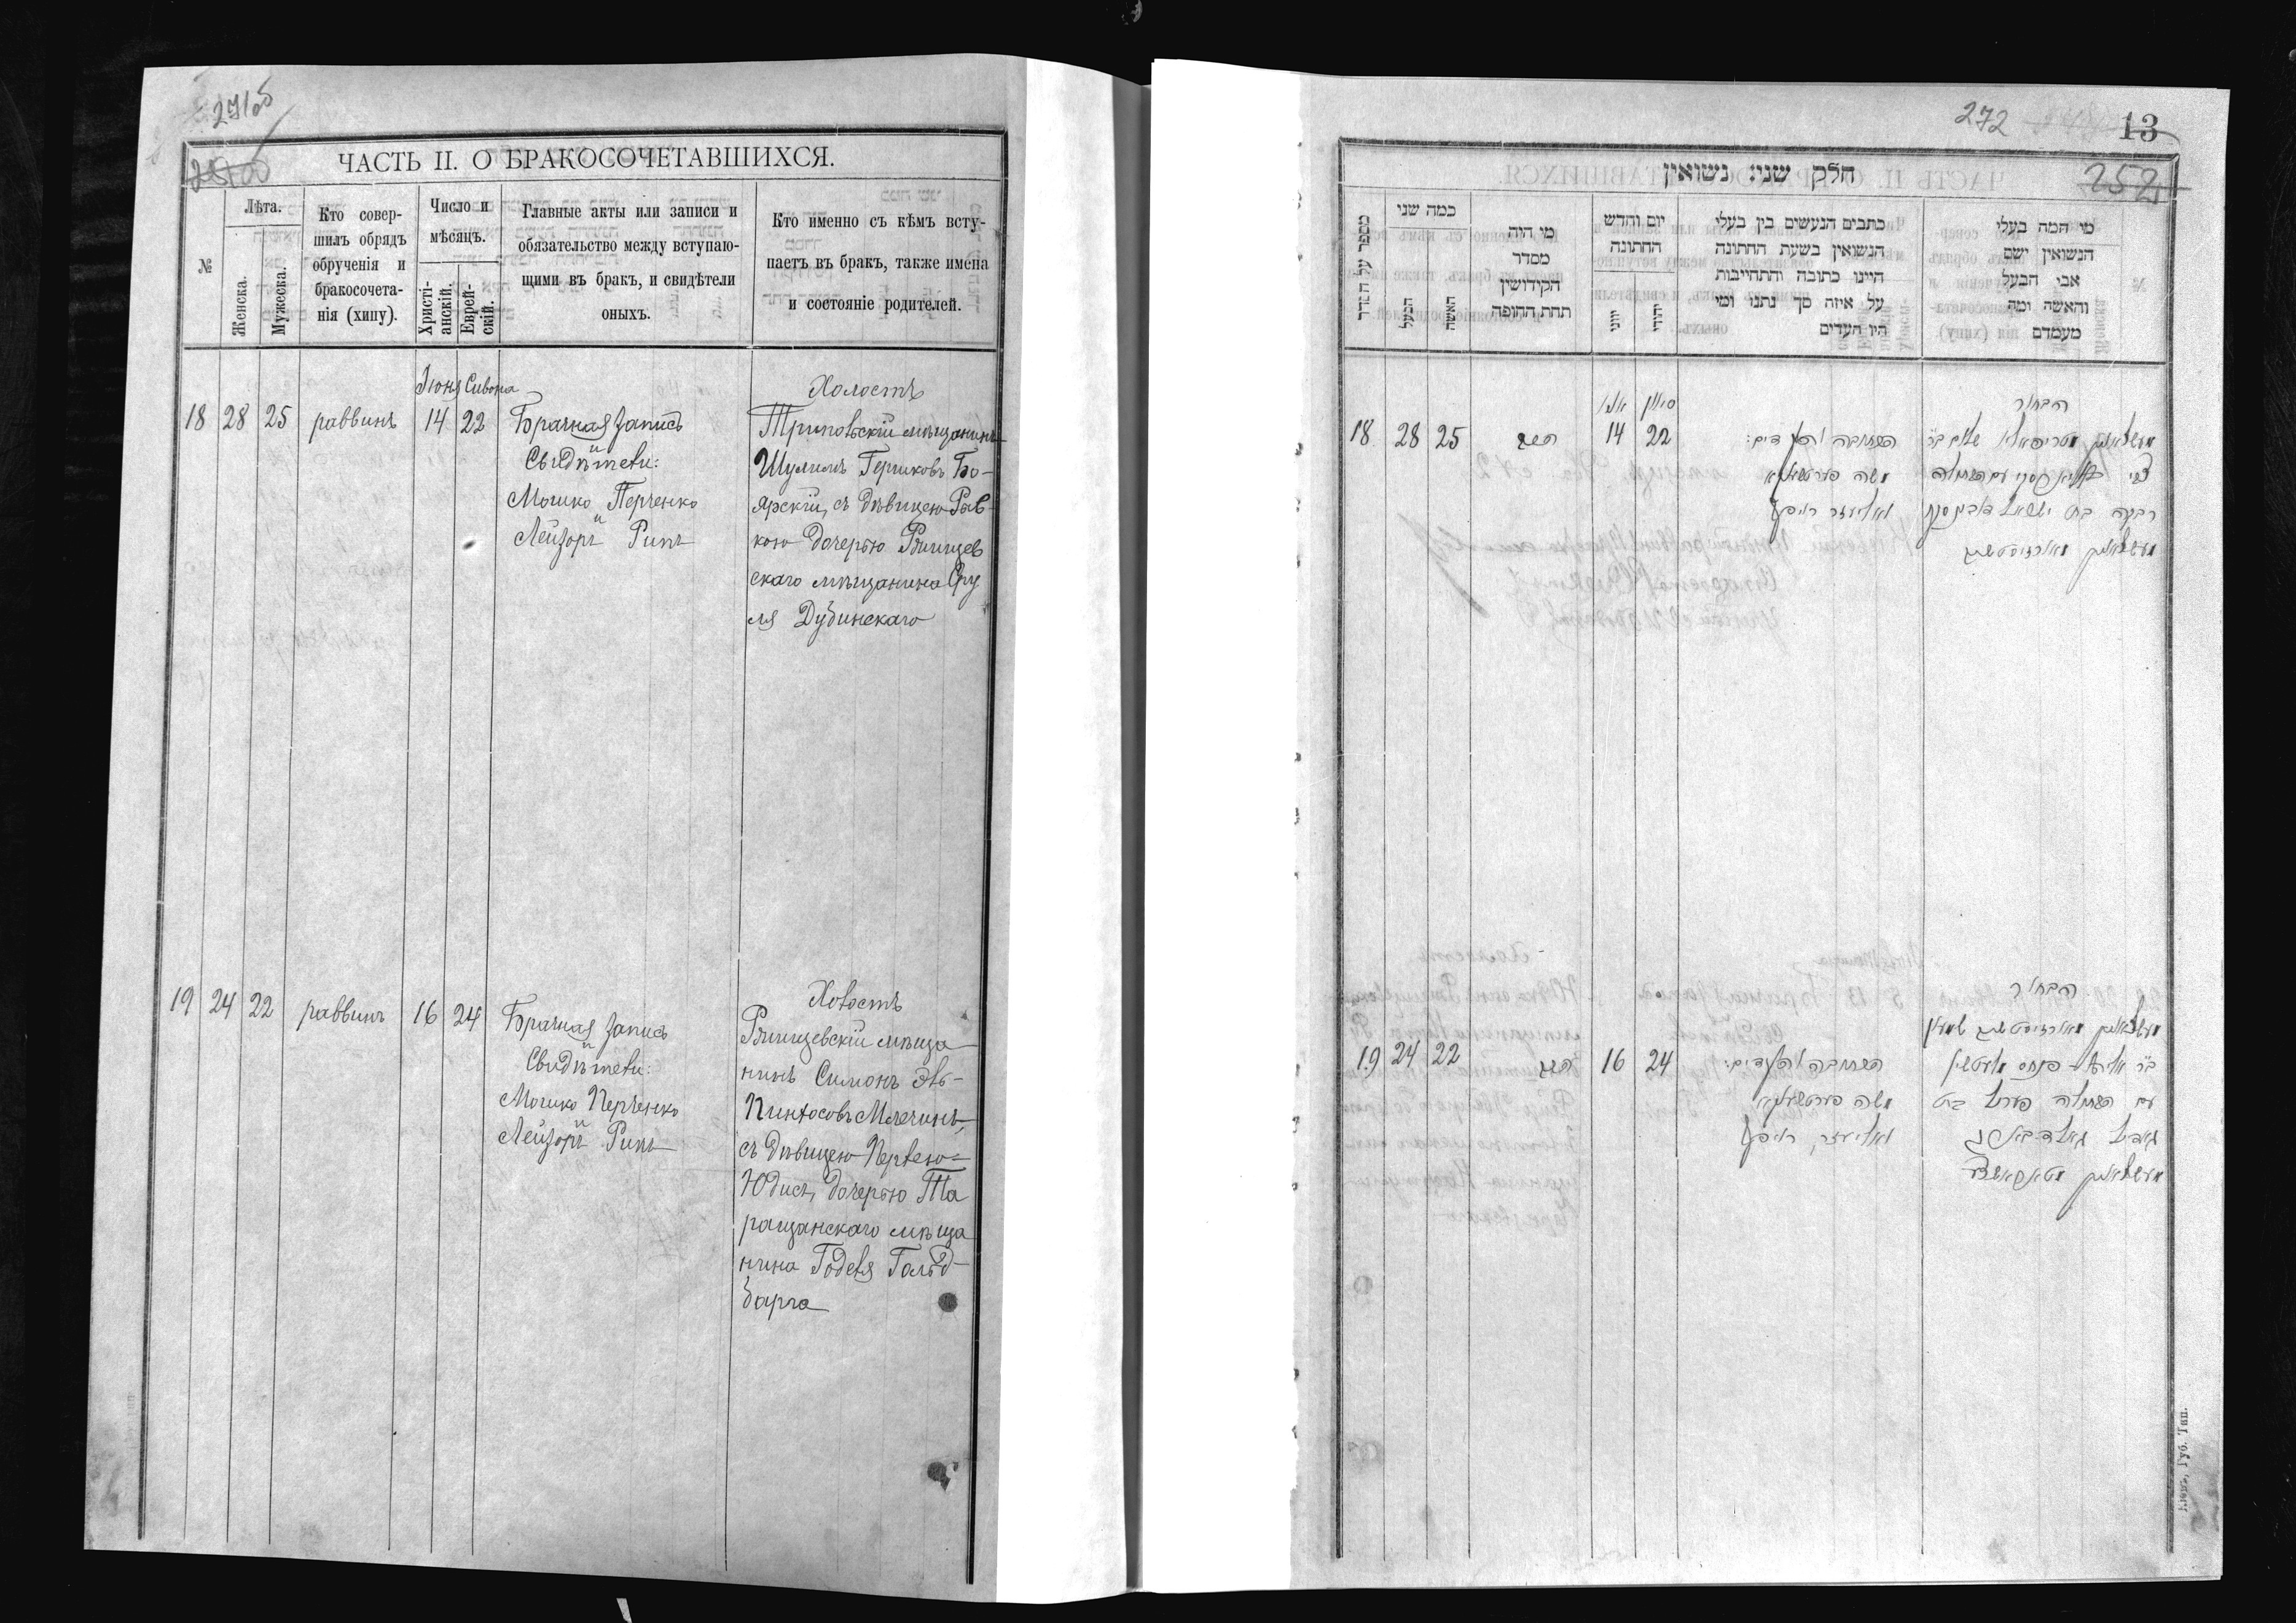 271об
ЧАСТЬ II. О БРАКОСОЧЕТАВШИХСЯ.
№
Лѣта.
Женска.
Мужеска.
Кто совер-
шилъ обрядъ
обрученія и
бракосочета-
нія (хипу).
Число и
мѣсяцъ.
Христі-
анскій.
Еврей-
скій.
Главные акты или записи и
обязательство между вступаю-
щими въ бракъ, и свидѣтели
оныхъ.
Кто именно съ кѣмъ всту-
паетъ въ бракъ, также имена
и состояніе родителей.
Іюня Сивона
18 28 25 раввинъ 14 22
Брачная запись
Свидѣтели:
Мошко Перченко
и
Лейзоръ Рипъ
Холостъ
Триповскій мѣщанинъ
Шулимъ Гершковъ Бо-
ярскій, съ дѣвицею Рыв-
кою дочерью Ржищев
скаго мѣщанина Сру
ля Дубинскаго
19 24 22 раввинъ 16 24
Брачная запись
Свидѣтели:
Мошко Перченко
и
Лейзоръ Рипъ
Холостъ
Ржищевскій мѣща-
нинъ Симонъ Эль-
Пинхосовъ Млечинъ,
съ дѣвицею Перлею-
Юдисъ, дочерью Та
ращанскаго мѣща
нина Годеля Гольд-
барга
272
13
252
חלק שני: נשואין
מספר על הסדר
כמה שני
הבעל
האשה
מי היה
מסדר
הקידושין
תחת החופה
יום וחדש
החתונה
יוני
יהודי
כתבים הנעשים בין בעלי
הנשואין בשעת החתונה
היינו כתובה והתחייבות
על איזה סך נתנו ומי
היו העדים
מי המה בעלי
הנשואין ושם
אבי הבעל
והאשה ומה
מעמדם
סיון
18 28 25
הרב
14 22
משה פערטשענקא
ואליעזר ריפ
הבחור
רבקה בת ישראל דובינסקי
19 24 22
הרב
16 24
משה פערטשענקא
ואליעזר ריפ
הבחור
עם הבתולה פערל בת
גאדיל גאלדבארג
Кіевъ, Губ. Тип.